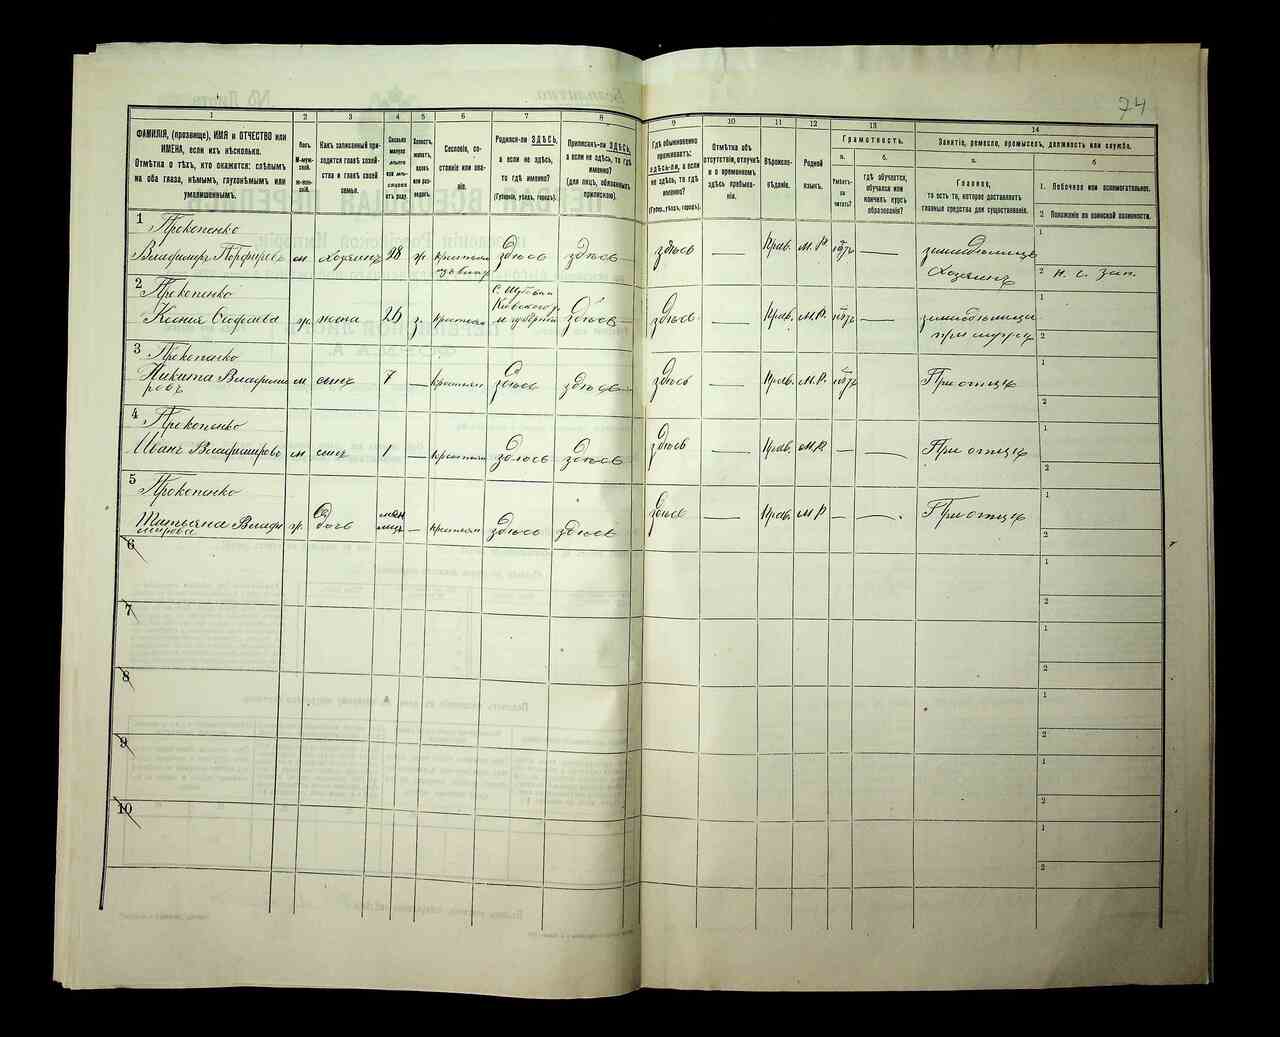 74
1
2
3
4
5
6
7
8
9
10
11
12
13
14
ФАМИЛІЯ, (прозвище), ИМЯ и ОТЧЕСТВО или
ИМЕНА, если ихъ нѣсколько.
Отмѣтка о тѣхъ, кто окажется: слѣпымъ
на оба глаза, нѣмымъ, глухонѣмымъ или
умалишеннымъ.
Полъ
М-муж-
ской.
Ж-жен-
скій.
Какъ записанный при-
ходится главѣ хозяй-
ства и главѣ своей
семьи.
Сколько
минуло
лѣтъ
или мѣ-
сяцевъ
отъ роду.
Холостъ,
женатъ,
вдовъ
или раз-
веденъ.
Сословіе, со-
стояніе или зва-
ніе.
Родился-ли ЗДѢСЬ,
а если не здѣсь,
то гдѣ именно?
(Губернія, уѣздъ, городъ).
Приписанъ-ли ЗДѢСЬ,
а если не здѣсь, то гдѣ
именно?
(для лицъ, обязанныхъ
припискою).
Гдѣ обыкновенно
проживаетъ:
здѣсь-ли, а если
не здѣсь, то гдѣ
именно?
(Губер., уѣздъ, городъ).
Отмѣтка объ
отсутствіи, отлучкѣ
и о временномъ
здѣсь пребыва-
ніи.
Вѣроиспо-
вѣданіе.
Родной
языкъ.
Грамотность.
а.
б.
Умѣетъ-
ли
читать?
гдѣ обучается,
обучался или
кончилъ курсъ
образованія?
Занятіе, ремесло, промыселъ, должность или служба.
а.
б
Главное,
то есть то, которое доставляетъ
главныя средства для существованія.
1. Побочное или вспомогательное.
2 Положеніе по воинской повинности.
1
Прокопенко
Владимиръ Порфировъ м хозяинъ 28 ж крестьян здѣсь здѣсь здѣсь — Прав. М. Р. нѣтъ — земледѣлецъ
хозяинъ 2 Н. с. зап.
2
Прокопенко
Ксенія жена 26 з. крестьян здѣсь здѣсь — Прав. М.Р. нѣтъ — земледѣлица
при мужѣ
3
Прокопенко
Никита Владими
ровъ м сынъ 7 — крестьян здѣсь здѣсь здѣсь — Прав. М.Р. нѣтъ — При отцѣ
4
Прокопенко
Иванъ Владимировъ м сынъ 1 — крестьян здѣсь здѣсь здѣсь — Прав. М.Р. — — При отцѣ
5
Прокопенко
Татьяна Влади
мирова ж. дочь — крестьян здѣсь здѣсь здѣсь — Прав. М.Р. — При отцѣ
6
7
8
9
10